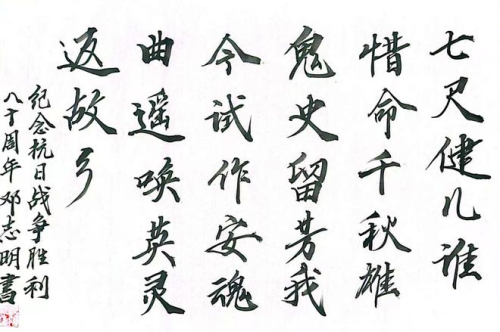 七尺健儿谁
惜命千秋雄
鬼史留芳我
今试作安魂
曲遥唤英灵
返故乡
纪念抗日战争胜利
八十周年邓志明书